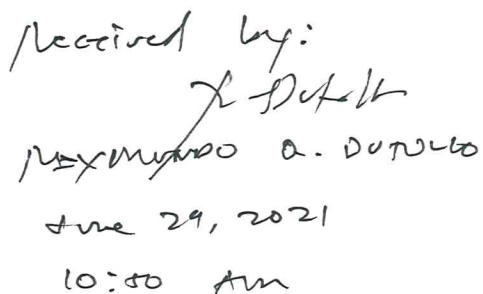 Received by:
REYMUNDO Q. DUTOLLO
June 29, 2021
10:50 Am